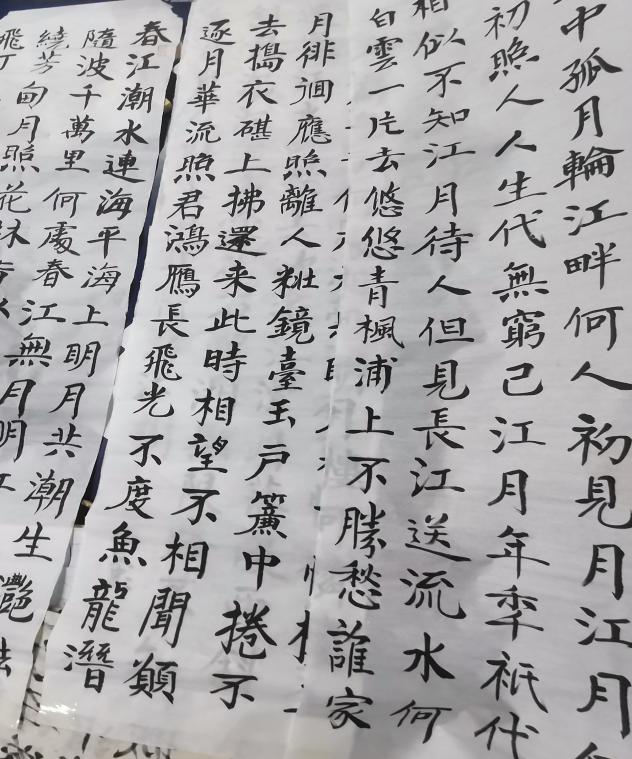 中孤月輪江畔何人初見月江月
初照人人生代無窮已江月年秊祇代
相似不知江月待人但見長江送流水何
白雲一片去悠悠青楓浦上不勝愁誰家
月徘徊應照離人粧鏡臺玉戶簾中捲不
去搗衣碪上拂還来此時相望不相聞願
逐月華流照君鴻鴈長飛光不度魚龍潛
春江潮水連海平海上明月共潮生灩
隨波千萬里何處春江無月明江
繞芳甸月照花林
飛